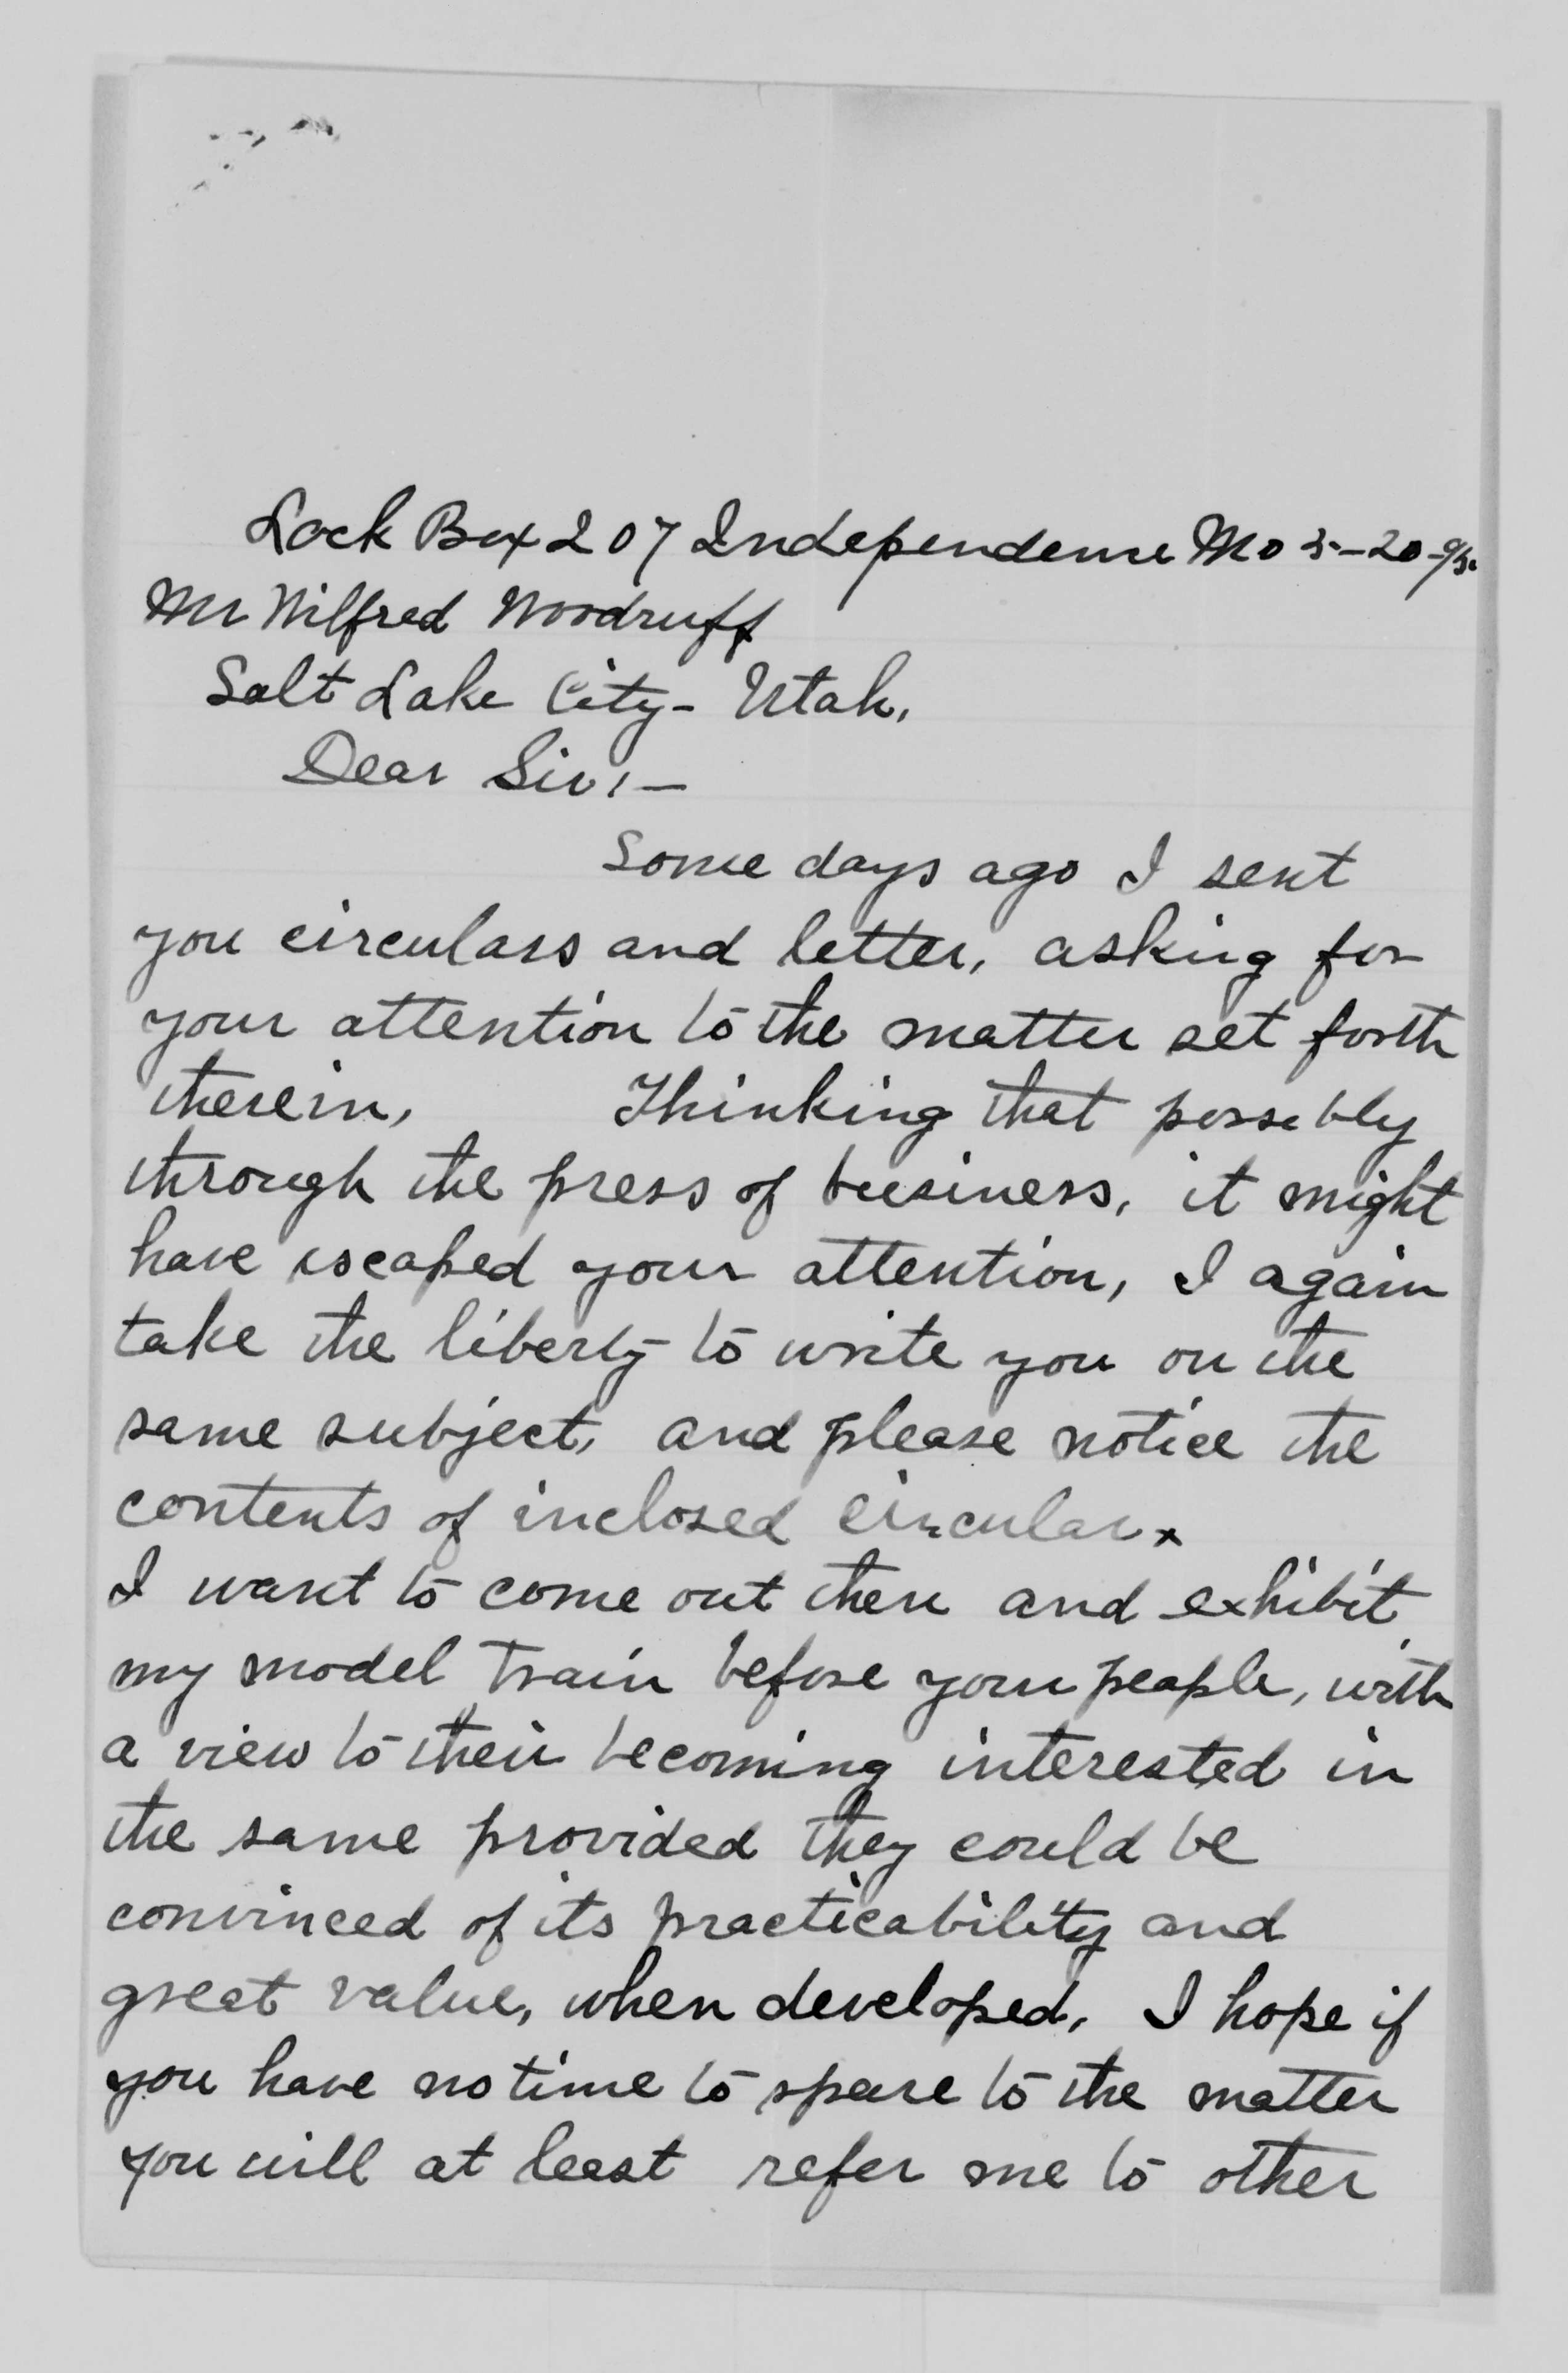 Lock Box 207 Independence Mo 5-20-95.
Mr Wilfred Woodruff
Salt Lake City- Utah,
Dear Sir,—
Some days ago I sent
you circulars and letter, asking for
your attention to the matter set forth
therein, Thinking that possibly
through the press of business, it might
have escaped your attention, I again
take the liberty to write you on the
same subject, and please notice the
contents of inclosed circular.
I want to come out there and exhibit
my model train before your people, with
a view to their becoming interested in
the same provided they could be
convinced of its practicability and
great value, when developed, I hope if
you have no time to spare to the matter
you will at least refer me to other